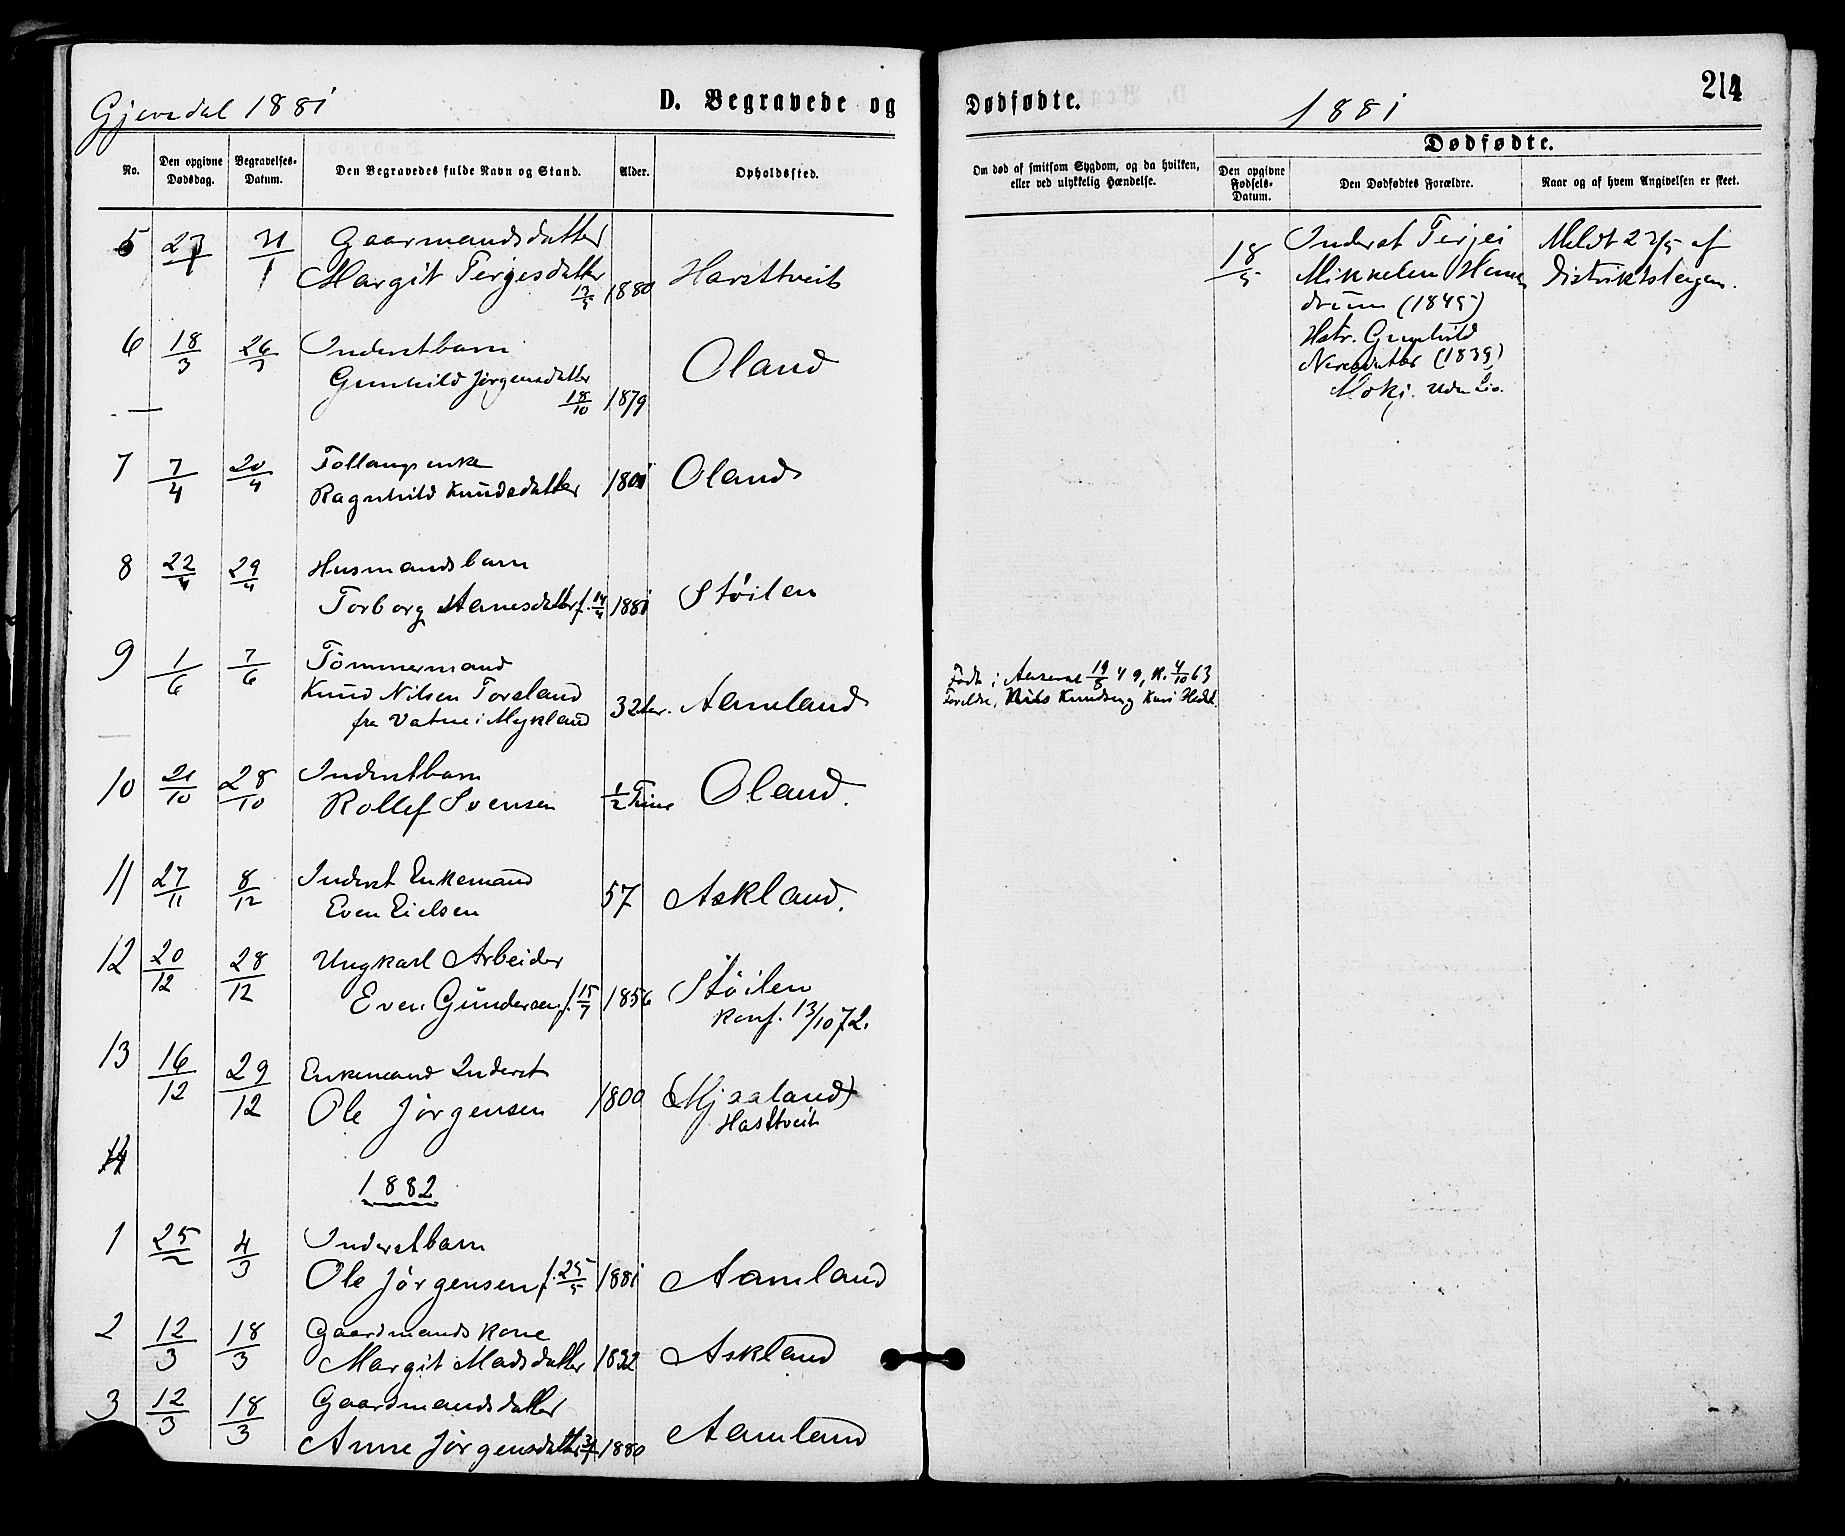 Gjøvdal 1881
D. Begravede og
Dødfødte.
1881
214
No.
Den opgivne Dødsdag.
Begravelses-Datum.
Den Begravedes fulde Navn og Stand.
Alder.
Opholdssted.
Om død af smitsom Sygdom, og da hvilken, eller ved ulykkelig Hændelse.
Dødfødte.
Den opgivne Fødsels-Datum.
Den Dødfødtes Forældre.
Naar og af hvem Angivelsen er skeet.
5 27/1 31/1 Gaarmandsdatter
Margit Terjesdatter 1880
6 18/3 26/3 Inderstbarn Oland
Gunhild Jørgensdatter
18/10 1879
7 7/4 20/4 Ragnhild Knudsdatter 1801 Oland
8 22/4 29/4 Husmandsbarn
Torborg Aanesdatter f. 14/4 1881 Støilen
9 1/6 7/6 Tømmermand
Knud Nilsen Toreland 32 Aamland
fra Vatne i Mykland
10 21/10 28/10 Inderstbarn
Rollef Svensen 1/2 Time Oland.
11 27/11 8/12 Inderst Enkemand
Even Eielsen 57 Askland.
12 20/12 28/12 Ungkarl Arbeider
Even Gundersen f. 15/7 1856 Støilen
Konf. 13/10 72.
13 16/12 29/12 Enkemand Inderst
Ole Jørgensen 1800 (Mjaaland)
14
1882
1 25/2 4/3 Inderstbarn
Ole Jørgensen f. 25/5 1881 Aamland
2 12/3 18/3 Gaardmandskone
Margit Madsdatter 1832 Askland
3 12/3 18/3 Gaardmandsdatter
Anne Jørgensdatter 1880 Aamland
Født i 19/8 49, K. 4/10 63
Foreldre, Nils Knudsen og Kari
18/5 Inderst Terjei Meldt 23/5 af
Mikkelsen Distriktslægen.
(1845)
Hstr. Gunhild
(1839)